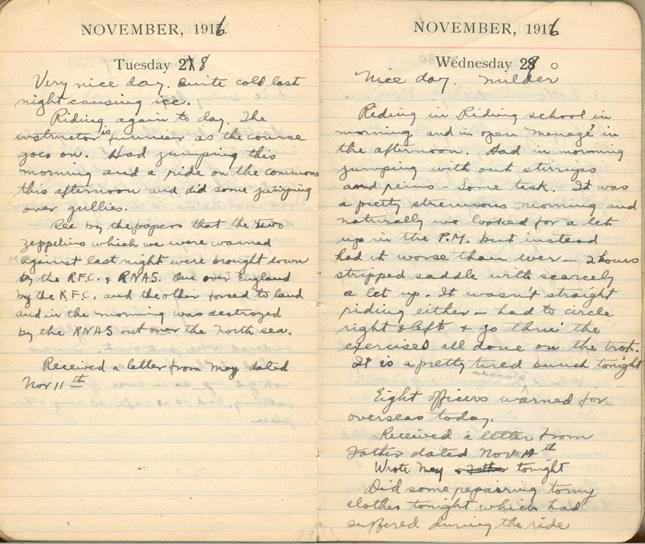 NOVEMBER, 1916.
Tuesday 28
Very nice day. Quite cold last
night causing ice.
Riding again to day. The
instructor is funnier as the course
goes on. Had jumping this
morning and a ride on the commons
this afternoon and did some jumping
over gullies.
See by the papers that the two
zeppelins which we were warned
against last night were brought down
by the R.F.C. & RNAS. One over England
by the R.F.C. and the other forced to land
and in the morning was destroyed
by the RNAS out over the North sea.
Received a letter from May dated
Nov 11th
NOVEMBER, 1916
Wednesday 29
Nice day. milder
Riding in Riding school in
morning and in open "manage" in
the afternoon. Had in morning
jumping with out stirrups
and reins - Some task. It was
a pretty strenuous morning and
naturally we looked for a let
up in the P.M. but instead
had it worse than ever - 2 hours
stripped saddle with scarcely
a let up. It wasn't straight
riding either - had to circle
right & left & go thru' the
exercises all done on the trot.
It is a pretty tired bunch tonight
Eight officers warned for
overseas today.
Received a letter from
Father dated Nov 14th
Wrote May & Father tonight
Did some repairing to my
clothes tonight which had
suffered during the ride